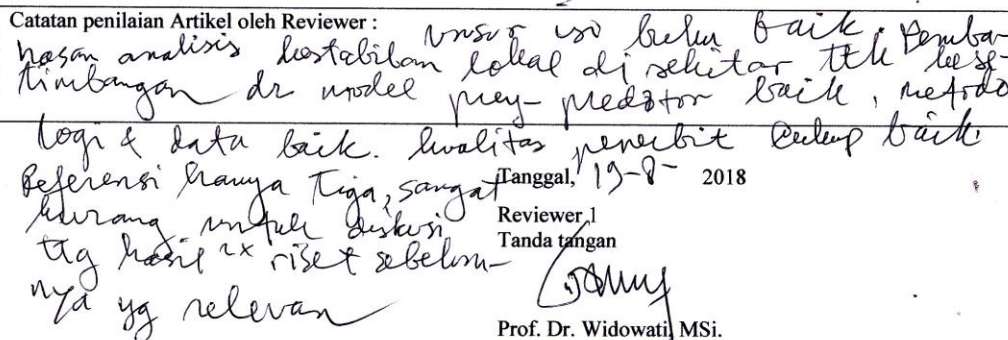 Catatan penilaian Artikel oleh Reviewer :
unsur isi buku baik. Pemba-
hasan analisis kestabilan lokal di sekitar ttk kese-
timbangan dr model prey-predator baik, metodo
logi & data baik. kwalitas penerbit cukup baik.
Referensi hanya tiga, sangat
kurang untuk diskusi
ttg hasil 2x riset sebelum-
nya yg relevan
Tanggal, 19-8- 2018
Reviewer 1
Tanda tangan
Prof. Dr. Widowati, MSi.